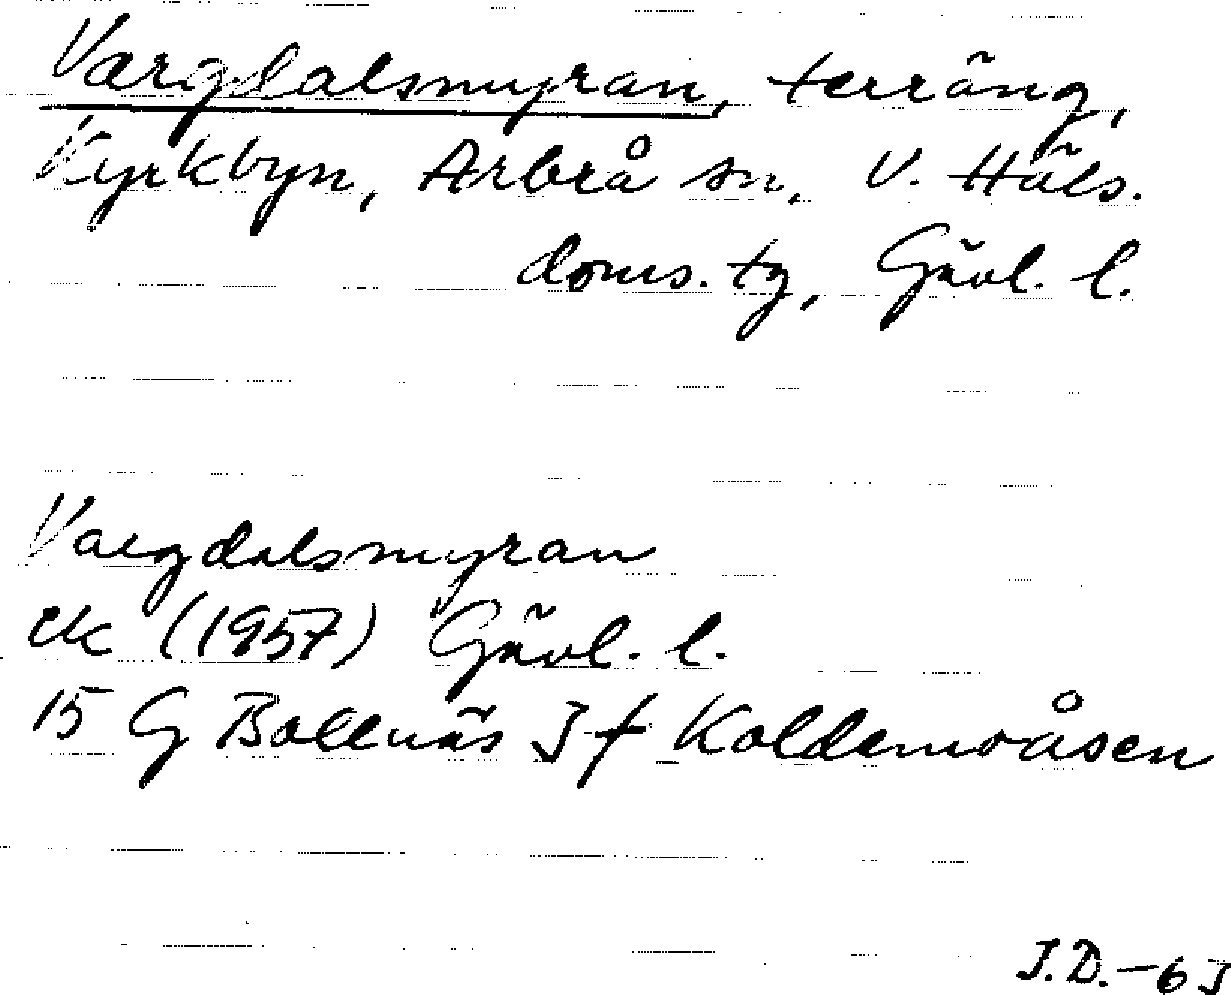 Vargdalsmyran, terräng,
Kyrkbyn, Arbrå sn, V. Häls.
doms. tg, Gävl. l.
Vargdalsmyran
ek (1957) Gävl. l.
15 G Bollnäs 3 f Koldemoåsen
J.D. - 63